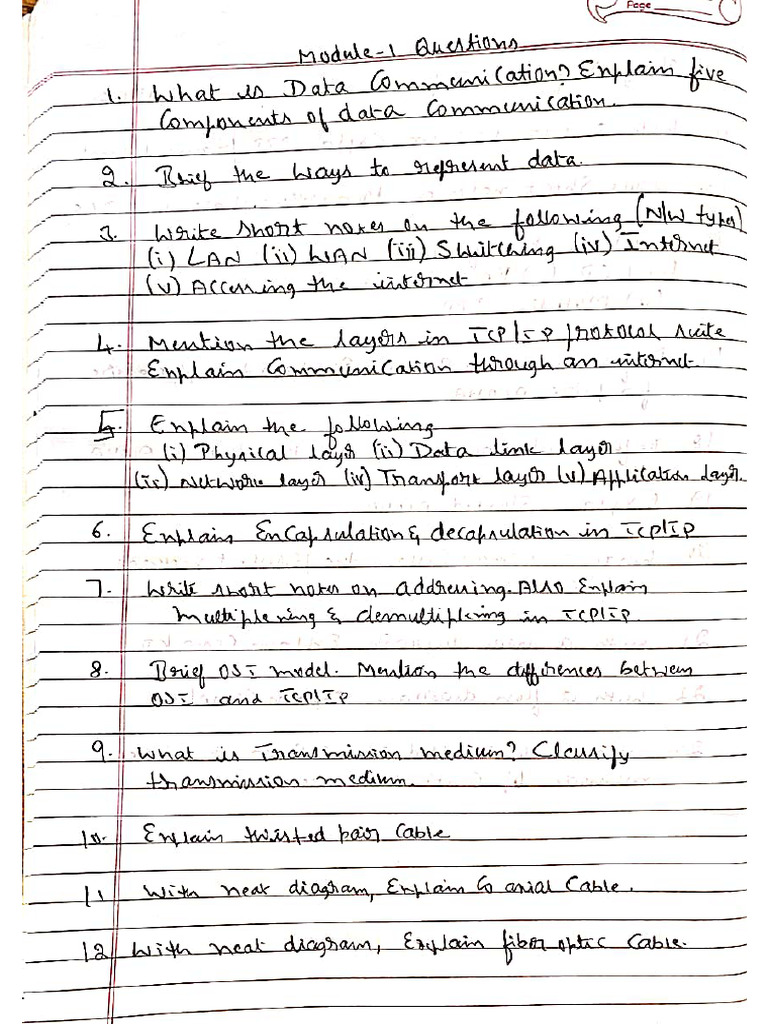 Page
Module-1 Questions
1. What is Data Communication? Explain five
Components of data Communication.
2. Brief the ways to represent data.
3. Write short notes on the following (N/W types)
(i) LAN (ii) WAN (iii) Switching (iv) Internet
(v) Accessing the internet
4. Mention the layers in TCP/IP protocol suite
Explain Communication through an internet.
5. Explain the following
(i) Physical layer (ii) Data link layer
(iii) Network layer (iv) Transport layer (v) Application layer.
6. Explain Encapsulation & decapsulation in TCP/IP
7. Write short notes on addressing. Also Explain
multiplexing & demultiplexing in TCP/IP
8. Brief OSI model. Mention the differences between
OSI and TCP/IP
9. What is Transmission medium? Classify
transmission medium.
10. Explain twisted pair Cable
11 With neat diagram, Explain Co axial Cable.
12 With neat diagram, Explain fiber optic Cable.